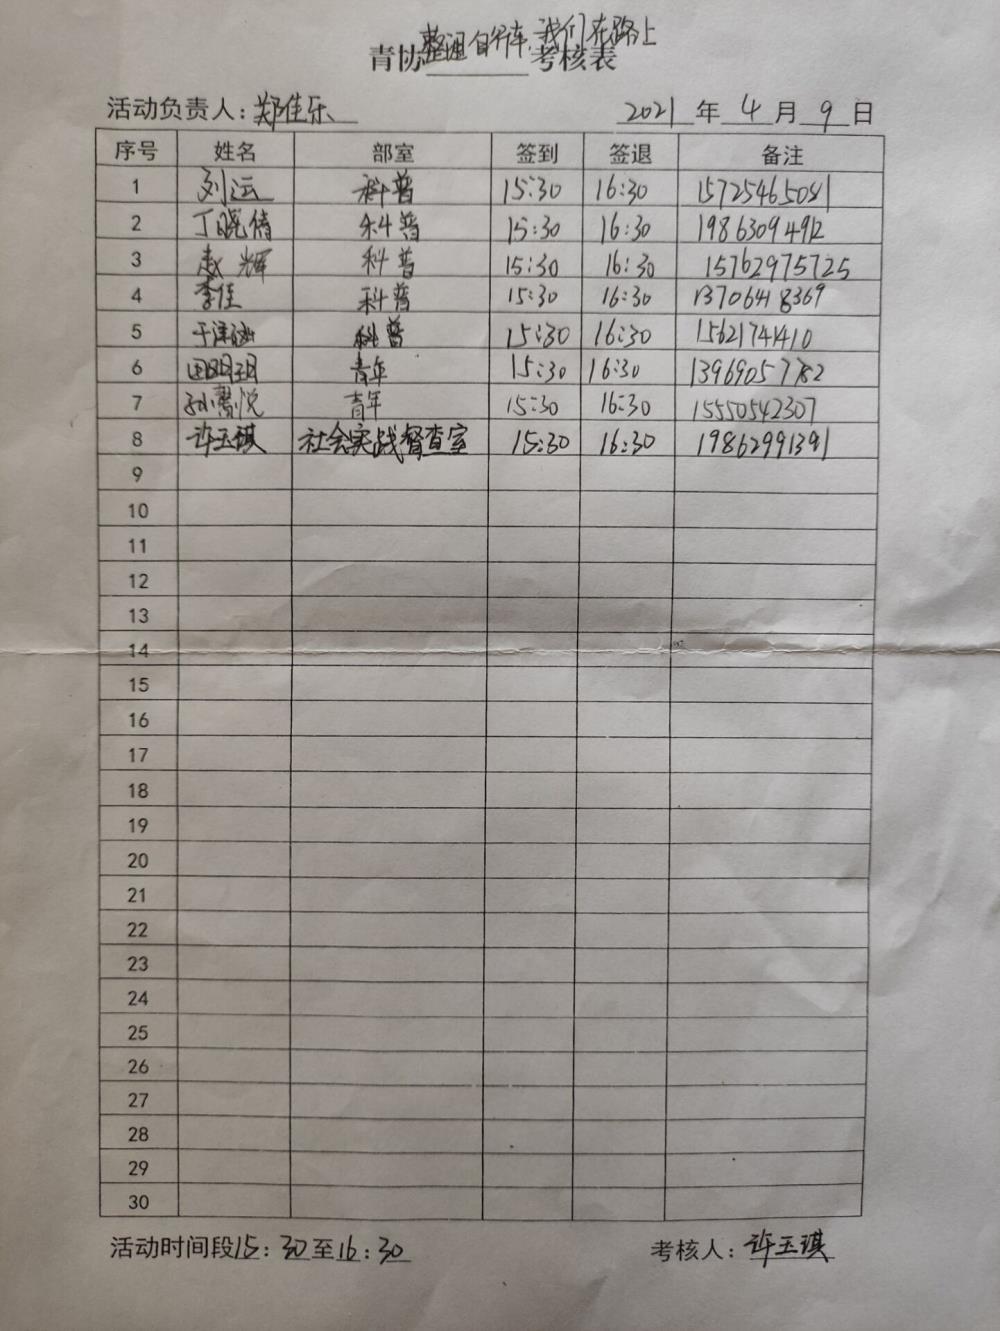 青协整理自行车,我们在路上考核表
活动负责人:郑佳乐 2021年4月9日
序号 姓名 部室 签到 签退 备注
1 刘运 科普 15:30 16:30 15725465081
2 丁晓倩 科普 15:30 16:30 19863094912
3 赵辉 科普 15:30 16:30 15762975725
4 李佳 科普 15:30 16:30 13706418369
5 科普 15:30 16:30 15621741410
6 田明玥 青年 15:30 16:30 13969057782
7 孙慧悦 青年 15:30 16:30 15550542307
8 许玉琪 社会实践督查室 15:30 16:30 19862991391
9
10
11
12
13
14
15
16
17
18
19
20
21
22
23
24
25
26
27
28
29
30
活动时间段15:30至16:30 考核人:许玉琪